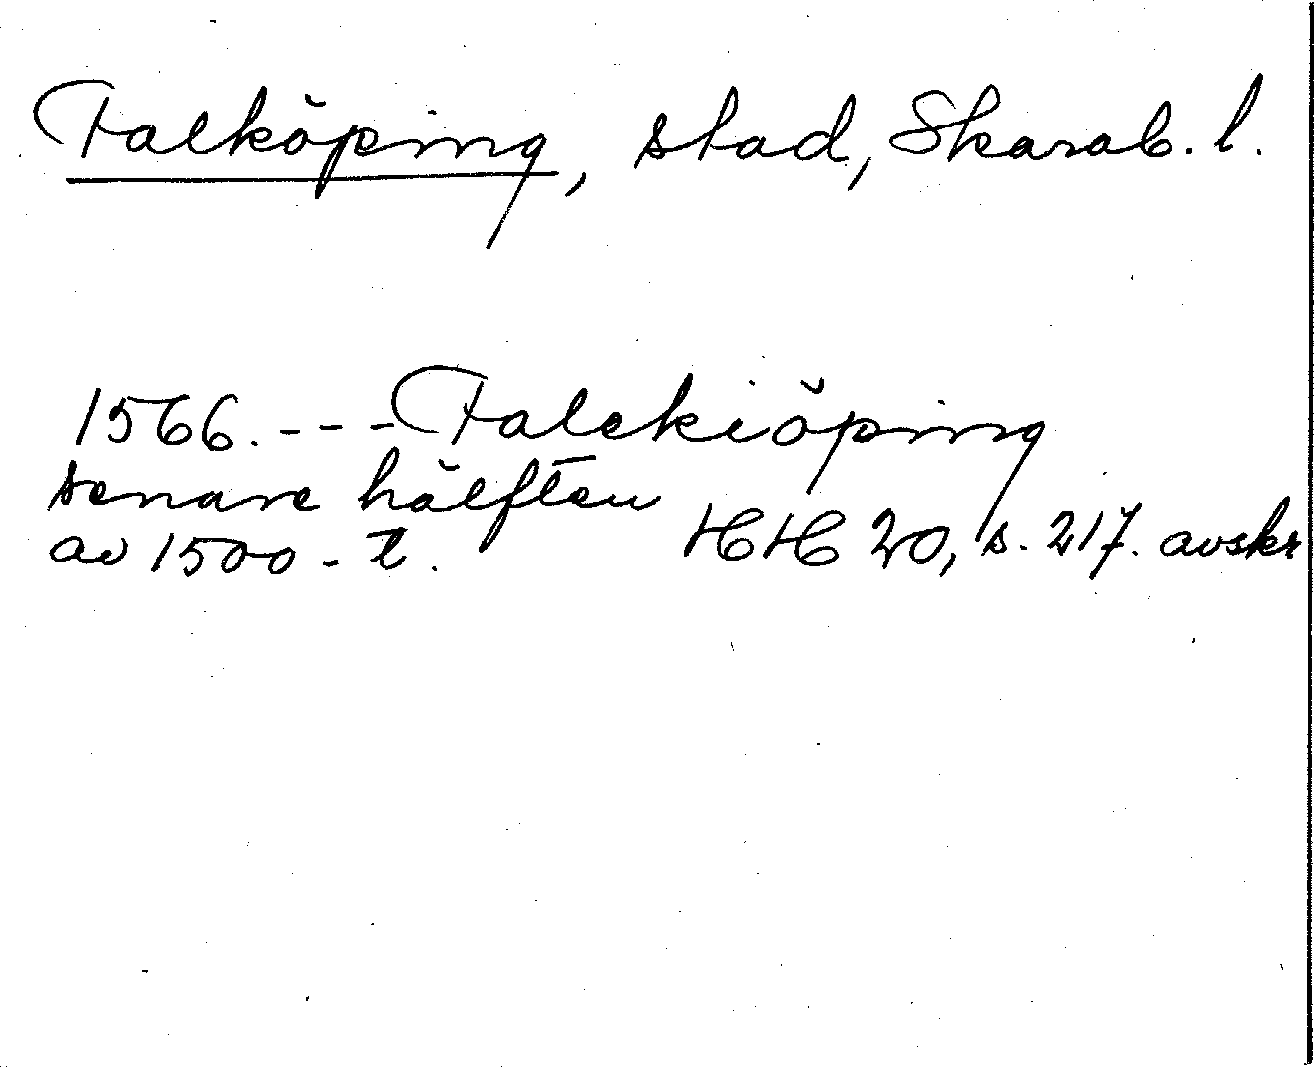 Falköping, stad, Skarab. l.
1566. --- Falekiöping
senare hälften
av 1500-t. HH 20, s. 217. avskr